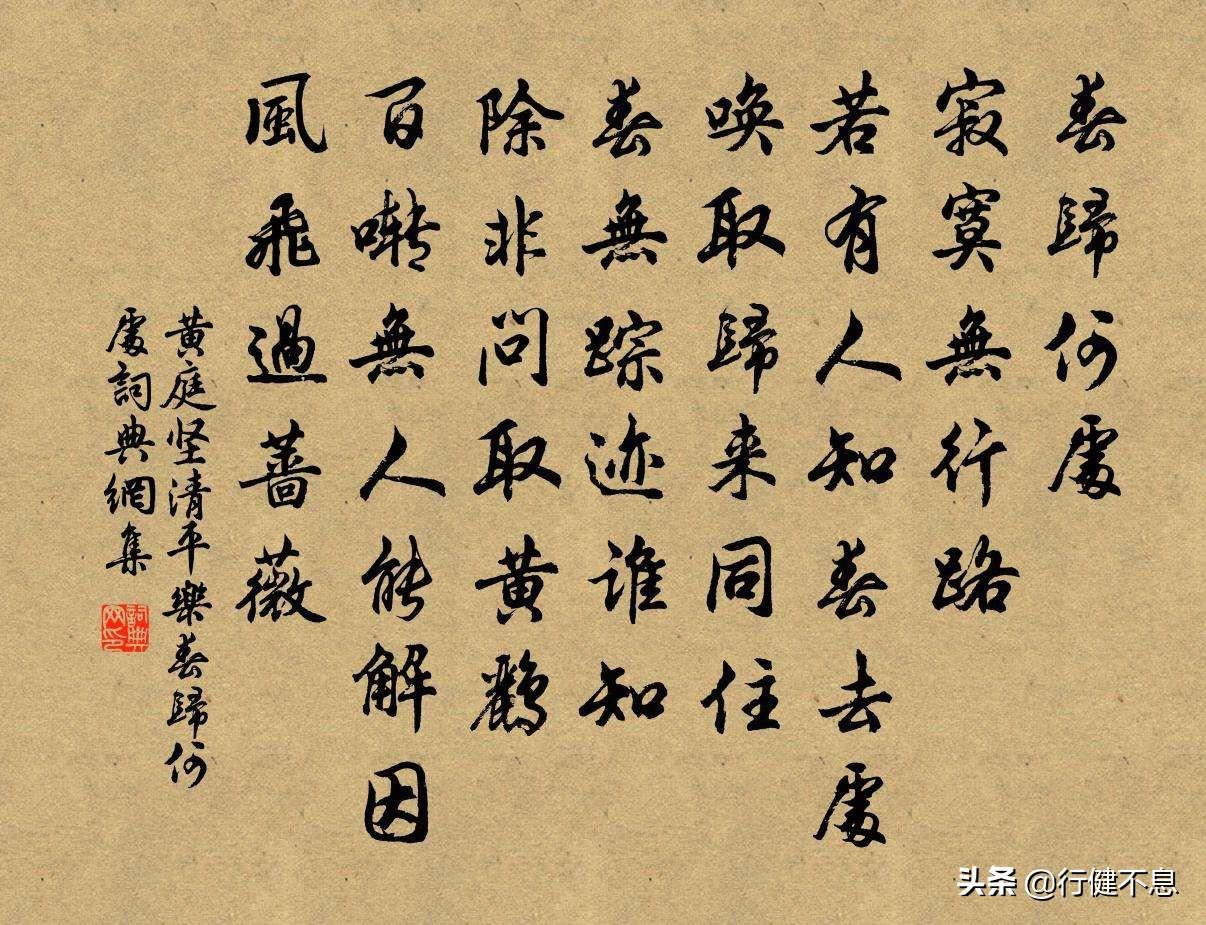 春歸何處
寂寞無行路
若有人知春去處
唤取歸来同住
春無踪迹谁知
除非問取黄鸝
百囀無人能解因
風飛過薔薇
黄庭坚清平樂春歸何
處詞典網集
詞典
网印
头条 @行健不息